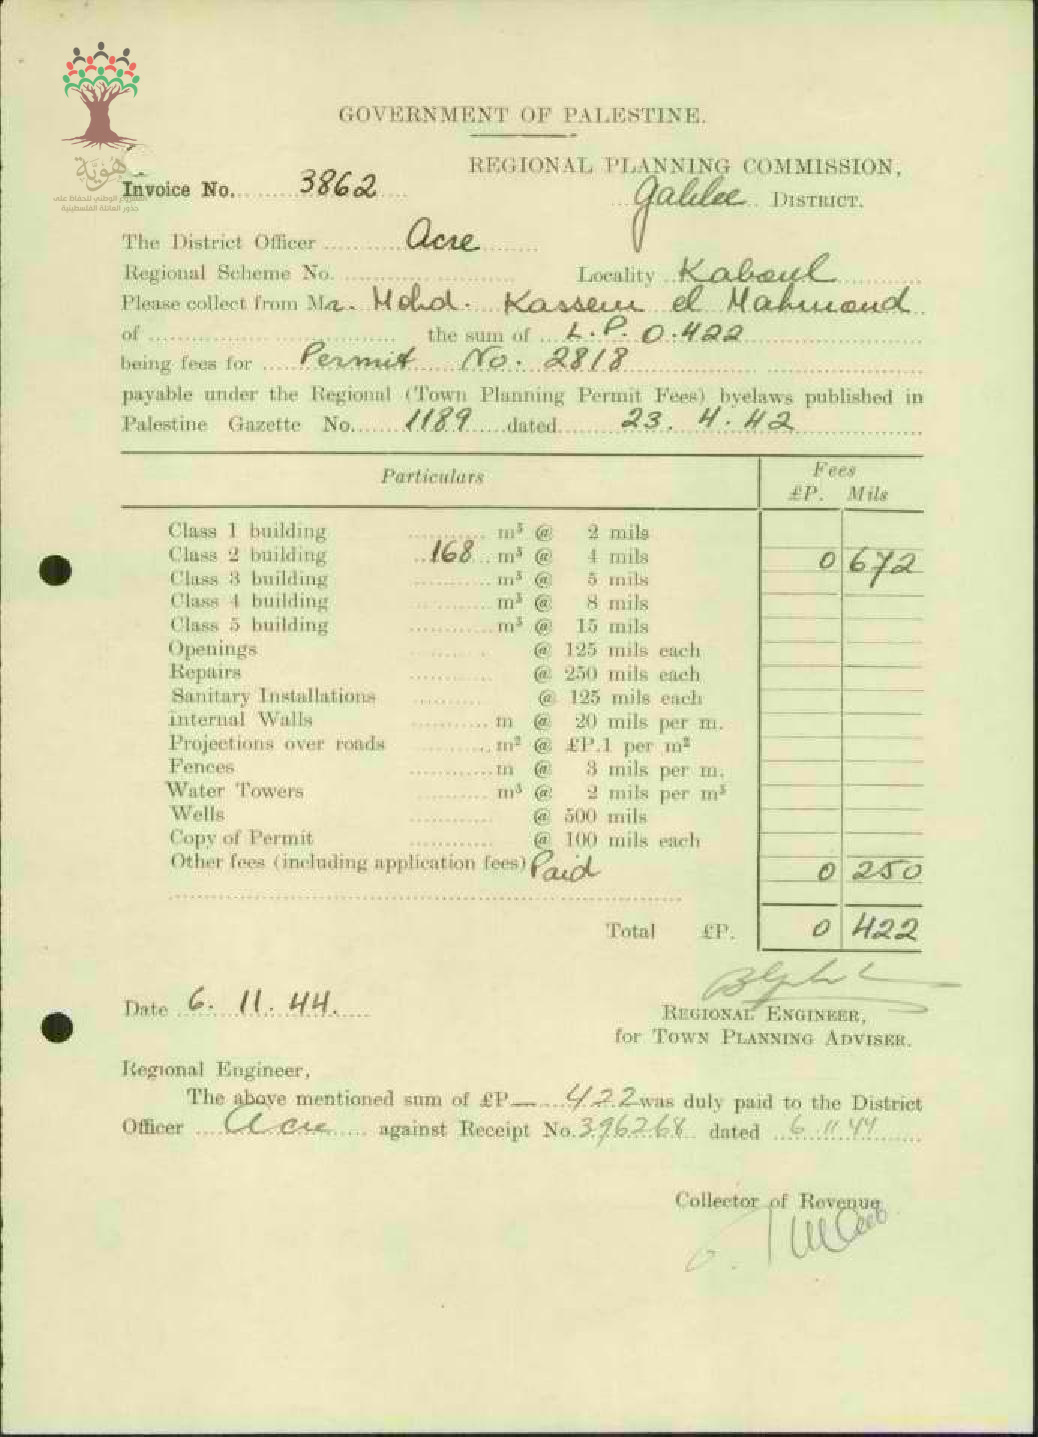 GOVERNMENT OF PALESTINE.
REGIONAL PLANNING COMMISSION,
هُويَّة
المشروع الوطني للحفاظ على
جذور العائلة الفلسطينية
Invoice No. 3862
Galilee DISTRICT.
The District Officer Acre
Regional Scheme No. Locality Kaboul
Please collect from Mr. Mohd. Kassem el Mahmoud
of the sum of L.P. 0.422
being fees for Permit No. 2818
payable under the Regional (Town Planning Permit Fees) byelaws published in
Palestine Gazette No. 1189 dated 23. 4. 42
Particulars Fees
£P. Mils
Class 1 building m³ @ 2 mils
Class 2 building 168 m³ @ 4 mils 0 672
Class 3 building m³ @ 5 mils
Class 4 building m³ @ 8 mils
Class 5 building m³ @ 15 mils
Openings @ 125 mils each
Repairs @ 250 mils each
Sanitary Installations @ 125 mils each
Internal Walls m @ 20 mils per m.
Projections over roads m² @ £P.1 per m²
Fences m @ 3 mils per m.
Water Towers m³ @ 2 mils per m³
Wells @ 500 mils
Copy of Permit @ 100 mils each
Other fees (including application fees) Paid 0 250
Total £P. 0 422
Date 6. 11. 44.
REGIONAL ENGINEER,
for TOWN PLANNING ADVISER.
Regional Engineer,
The above mentioned sum of £P— 422 was duly paid to the District
Officer Acre against Receipt No. 396268 dated 6 11 44
Collector of Revenue